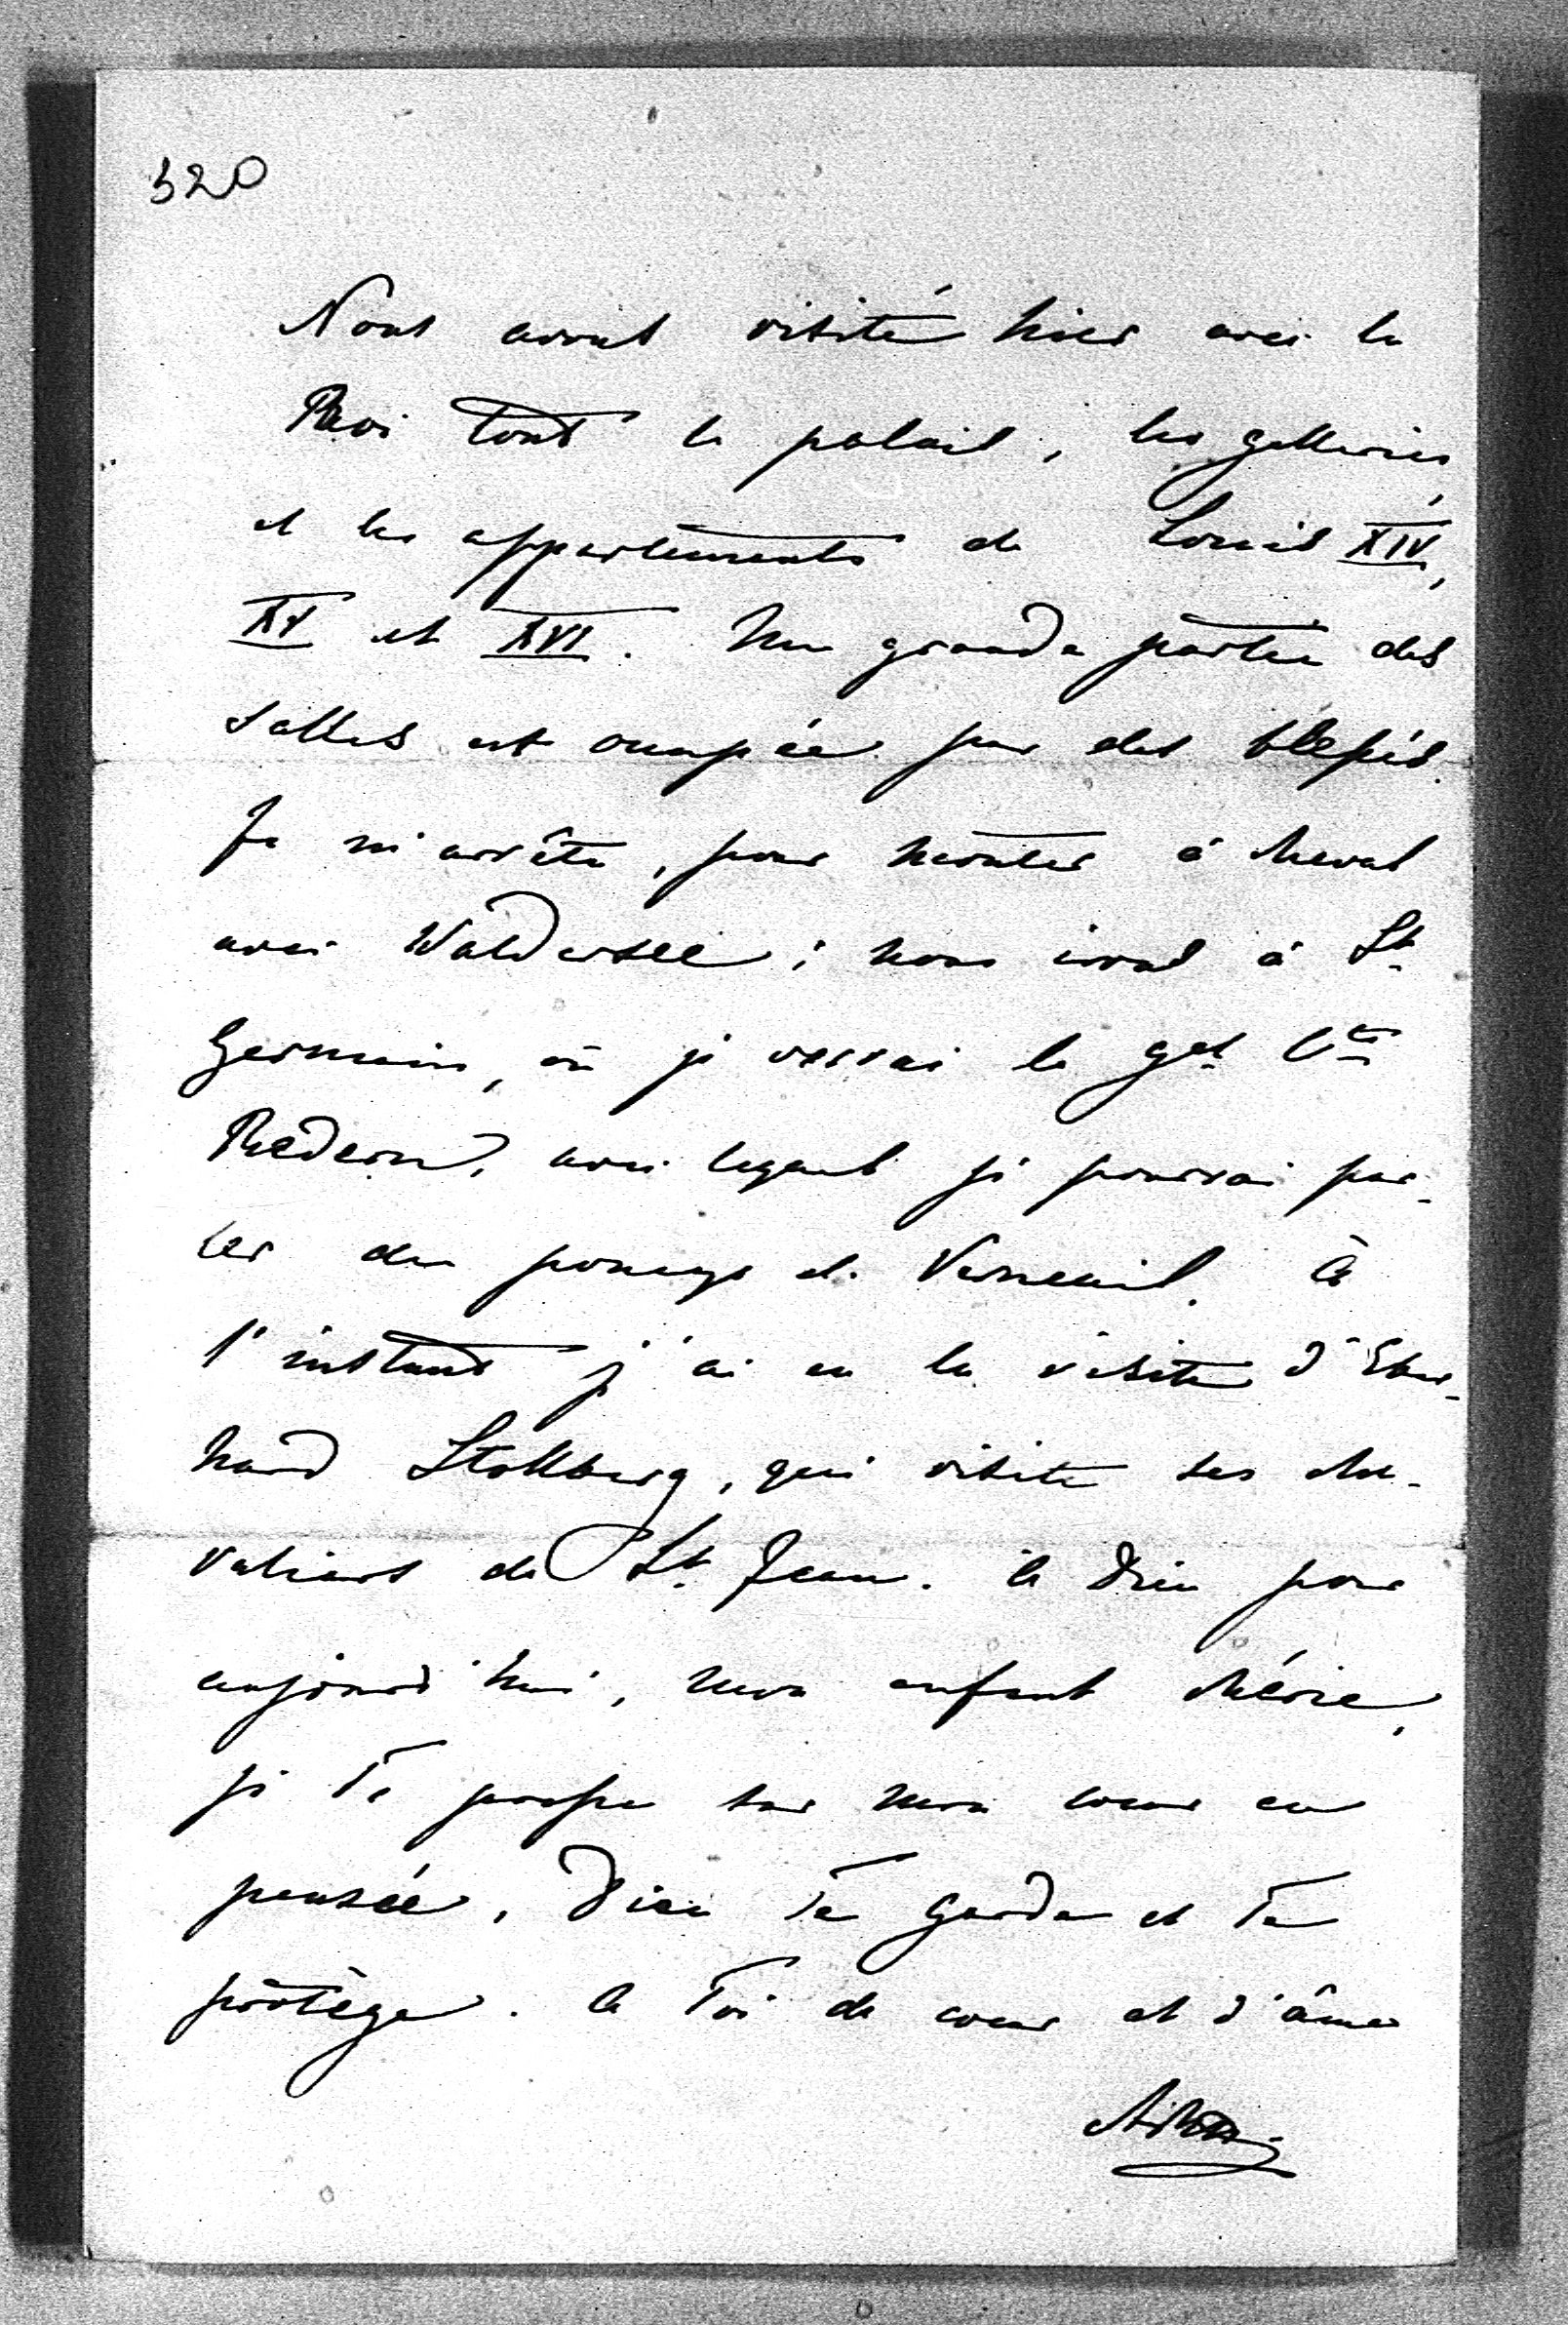 320
Nous avons visité hier avec le
Roi tout le palais, les galleries
et les appartements de Louis XIV,
XV et XVI. Une grande partie des
salles est occupée par des blessés.
Je m'arrête, pour monter à cheval
avec Waldersee; nous irons à St
Germain, où je verrai le gal Cte
Redern, avec lequel je pourrai par-
ler du poneys de Verneuil. À
l'instant j'ai eu la visite d'Eber-
hard Stollberg, qui visite ses che-
valiers de St Jean. à Dieu pour
aujourd'hui, mon enfant chérie,
je Te presse sur mon cœur en
pensée, Dieu Te garde et Te
protège. à Toi de cœur et d'âme